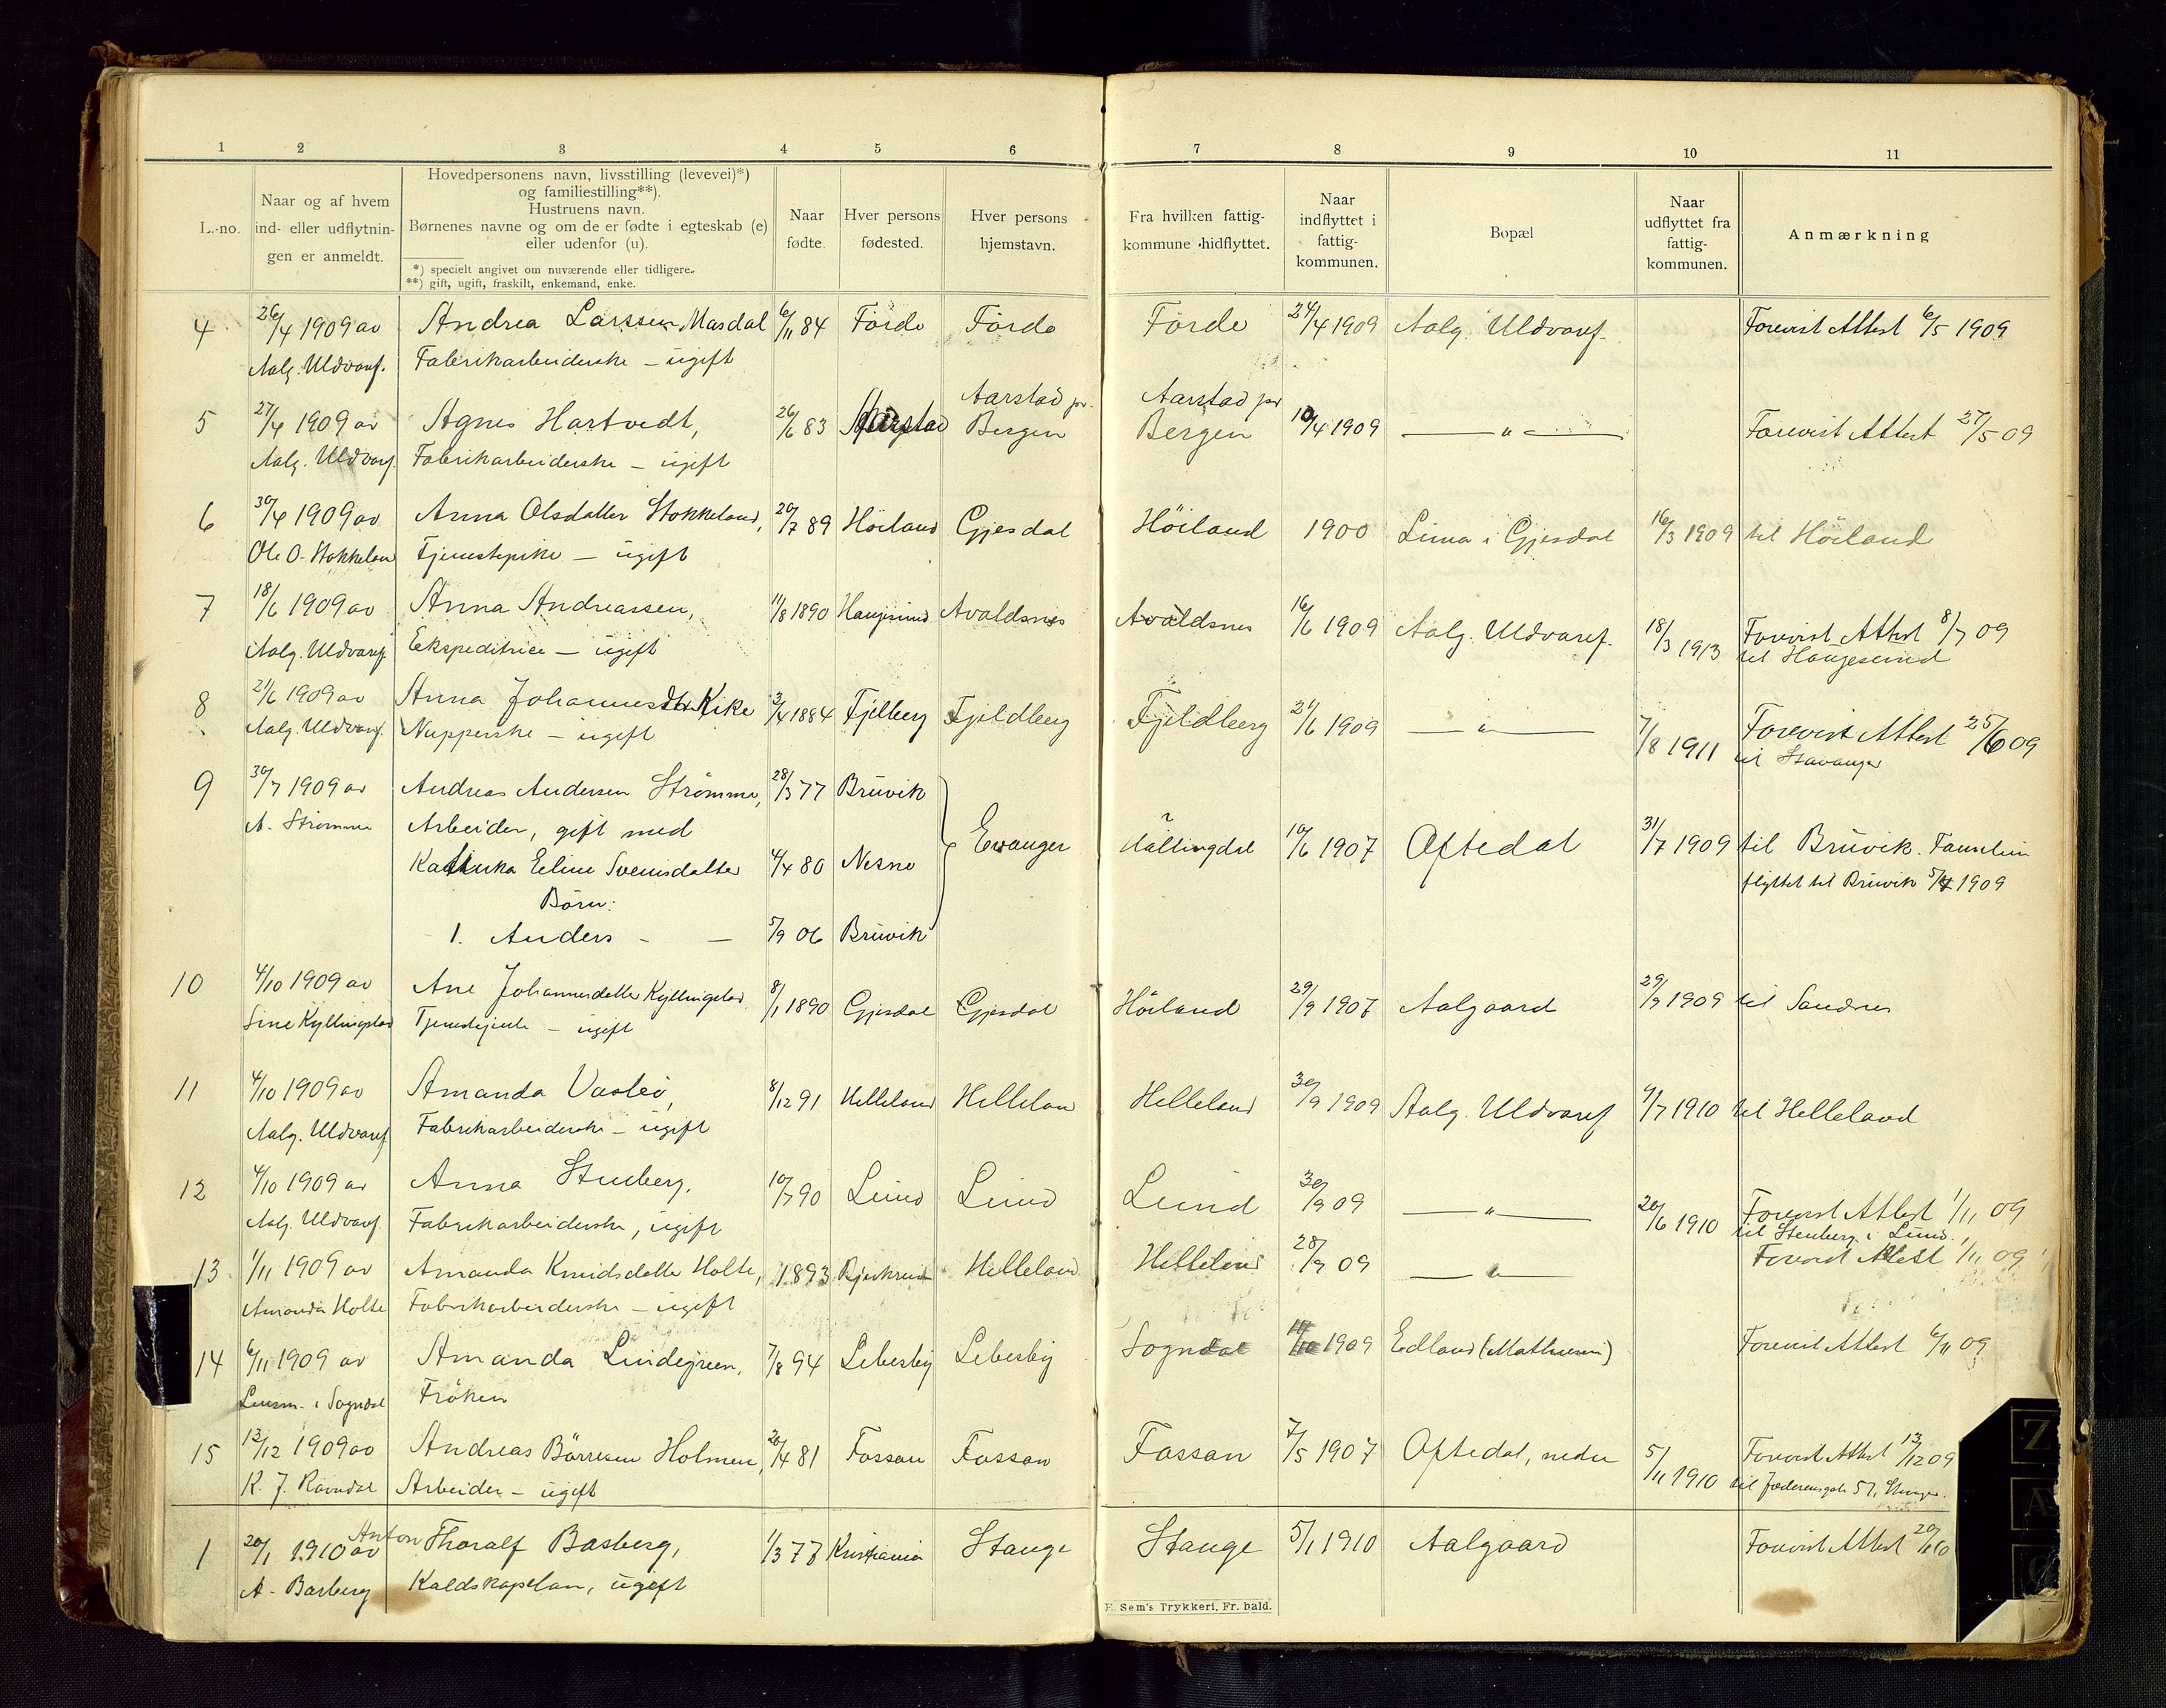 1 2 3 4 5 6 7 8 9 10 11
L.-no.
Naar og af hvem
ind- eller udflytnin-
gen er anmeldt.
Hovedpersonens navn, livsstilling (levevei)*)
og familiestilling**).
Hustruens navn.
Børnenes navne og om de er fødte i egteskab (e)
eller udenfor (u).
*) specielt angivet om nuværende eller tidligere.
**) gift, ugift, fraskilt, enkemand, enke.
Naar
fødte.
Hver persons
fødested.
Hver persons
hjemstavn.
Fra hvilken fattig-
kommune hidflyttet.
Naar
indflyttet i
fattig-
kommunen.
Bopæl
Naar
udflyttet fra
fattig-
kommunen.
Anmærkning
4 26/4 1909 av Andrea Larssen Masdal 6/11 84 Förde Förde Förde 24/4 1909 Aalg. Uldvaref. Forevist Attest 6/5 1909
Aalg. Uldvarf. Fabrikarbeiderske – ugift
Aarstad pr. Aarstad pr
5 27/4 1909 av Agnes Hartvedt, 26/6 83 Aarstad Bergen Bergen 10/4 1909 — " — Forevist Attest 27/5 09
Aalg. Uldvarf. Fabrikarbeiderske – ugift
6 30/4 1909 av Anna Olsdatter Stokkeland, 20/7 89 Höiland Gjesdal Höiland 1900 Lima i Gjesdal 16/3 1909 til Höiland
Ole O. Stokkelan Tjenestepike – ugift
7 18/6 1909 av Anna Andreassen, 11/8 1890 Haugesund Avaldsnes Avaldsnes 16/6 1909 Aalg. Uldvaref. 18/3 1913 Forevist Attest 8/7 09
Aalg. Uldvaref. Ekspeditrice – ugift til Haugesund
8 21/6 1909 av Anna Johannesdtr Kike 3/4 1884 Fjelberg Fjeldberg Fjeldberg 21/6 1909 — " — 7/8 1911 Forevist Attest 25/6 09
Aalg. Uldvarf. Nupperske – ugift til Stavanger
9 30/7 1909 av Andreas Andersen Strømme, 28/3 77 Bruvik
A. Strømme Arbeider, gift med Evanger Hallingdal 10/6 1907 Oftedal 31/7 1909 til Bruvik. Familien
Kathinka Eline Svensdatter 4/4 80 Nesne flyttet til Bruvik 5/7 1909
Børn:
1. Anders - — 5/9 06 Bruvik
10 4/10 1909 av Ane Johannesdatter Kyllingstad 8/1 1890 Gjesdal Gjesdal Höiland 29/9 1907 Aalgaard 29/9 1909 til Sandnes
Sine Kyllingstad Tjenestejente – ugift
11 4/10 1909 av Amanda Vasbø, 8/12 91 Helleland Hellelan Helleland 30/9 1909 Aalg. Uldvaref 9/7 1910 til Helleland
Aalg. Uldvaref. Fabrikarbeiderske – ugift
12 4/10 1909 av Anna Stenberg, 10/7 90 Lund Lund Lund 30/9 09 — " — 20/6 1910 Forevist Attest 1/11 09
Aalg. Uldvaref. Fabrikarbeiderske, ugift til Stenberg i Lund.
13 1/11 1909 av Amanda Knudsdatter Holte, 1893 Bjerkreim Helleland Helleland 28/9 09 — " Forevist Attest 1/11 09
Amanda Holte Fabrikarbeiderske – ugift
14 6/11 1909 av Amanda Lindegreen, 7/8 94 Lebesby Lebesby Sogndal 1909 Edland (Mathiesen) Forevist Attest 6/11 09
Lensm. i Sogndal Frøken
15 13/12 1909 av Andreas Börresen Holmen, 20/4 81 Fossan Fossan Fossan 7/5 1907 Oftedal, nedre 5/11 1910 Forevist Attest 13/12 09
K. J. Ravndal Arbeider – ugift til Jæderensgate 57,
1 20/1 1910 av Anton Thoralf Basberg, 1/3 77 Kristiania Stange Stange 5/1 1910 Aalgaard Forevist Attest 20/1 10
A. Basberg Kaldskapelan, ugift
E. Sem's Trykkeri, Fr. hald.
Z
A